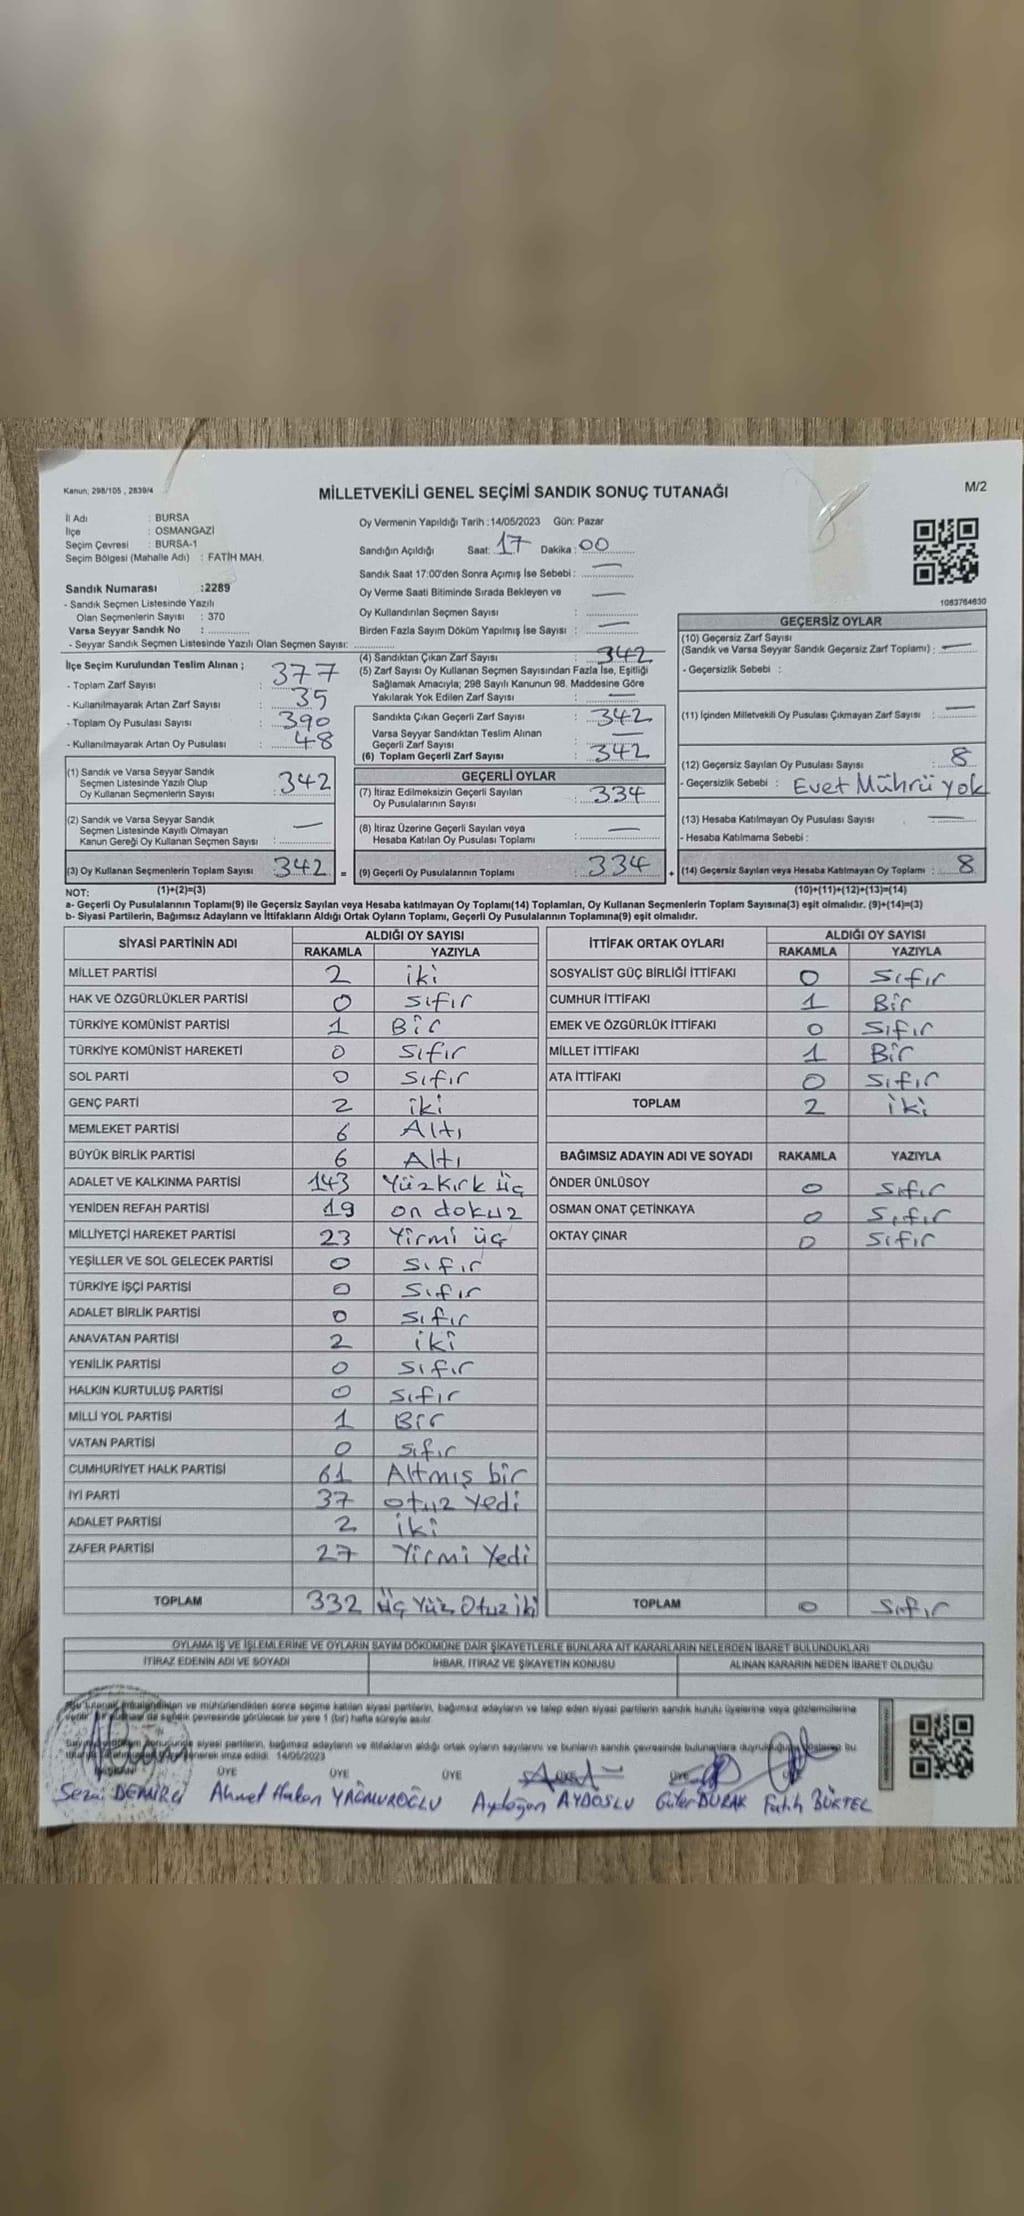 Kanun; 298/105 , 2839/4
MİLLETVEKİLİ GENEL SEÇİMİ SANDIK SONUÇ TUTANAĞI
M/2
İl Adı : BURSA
İlçe : OSMANGAZİ
Seçim Çevresi : BURSA-1
Seçim Bölgesi (Mahalle Adı) : FATİH MAH.
Sandık Numarası :2289
- Sandık Seçmen Listesinde Yazılı
Olan Seçmenlerin Sayısı : 370
Varsa Seyyar Sandık No :
- Seyyar Sandık Seçmen Listesinde Yazılı Olan Seçmen Sayısı:
Oy Vermenin Yapıldığı Tarih :14/05/2023 Gün: Pazar
Sandığın Açıldığı Saat: 17 Dakika : 00
Sandık Saat 17:00'den Sonra Açımış İse Sebebi : —
Oy Verme Saati Bitiminde Sırada Bekleyen ve —
Oy Kullandırılan Seçmen Sayısı :
Birden Fazla Sayım Döküm Yapılmış İse Sayısı : —
1083764630
İlçe Seçim Kurulundan Teslim Alınan ;
- Toplam Zarf Sayısı : 377
- Kullanılmayarak Artan Zarf Sayısı : 35
- Toplam Oy Pusulası Sayısı : 390
- Kullanılmayarak Artan Oy Pusulası : 48
(1) Sandık ve Varsa Seyyar Sandık
Seçmen Listesinde Yazılı Olup
Oy Kullanan Seçmenlerin Sayısı : 342
(2) Sandık ve Varsa Seyyar Sandık
Seçmen Listesinde Kayıtlı Olmayan
Kanun Gereği Oy Kullanan Seçmen Sayısı : —
(3) Oy Kullanan Seçmenlerin Toplam Sayısı : 342 =
(4) Sandıktan Çıkan Zarf Sayısı : 342
(5) Zarf Sayısı Oy Kullanan Seçmen Sayısından Fazla İse, Eşitliği
Sağlamak Amacıyla; 298 Sayılı Kanunun 98. Maddesine Göre
Yakılarak Yok Edilen Zarf Sayısı : —
Sandıkta Çıkan Geçerli Zarf Sayısı : 342
Varsa Seyyar Sandıktan Teslim Alınan
Geçerli Zarf Sayısı : —
(6) Toplam Geçerli Zarf Sayısı : 342
GEÇERLİ OYLAR
(7) İtiraz Edilmeksizin Geçerli Sayılan
Oy Pusulalarının Sayısı : 334
(8) İtiraz Üzerine Geçerli Sayılan veya
Hesaba Katılan Oy Pusulası Toplamı : —
(9) Geçerli Oy Pusulalarının Toplamı : 334 +
GEÇERSİZ OYLAR
(10) Geçersiz Zarf Sayısı
(Sandık ve Varsa Seyyar Sandık Geçersiz Zarf Toplamı) : —
- Geçersizlik Sebebi :
(11) İçinden Milletvekili Oy Pusulası Çıkmayan Zarf Sayısı : —
(12) Geçersiz Sayılan Oy Pusulası Sayısı : 8
- Geçersizlik Sebebi : Evet Mührü yok
(13) Hesaba Katılmayan Oy Pusulası Sayısı : —
- Hesaba Katılmama Sebebi :
(14) Geçersiz Sayılan veya Hesaba Katılmayan Oy Toplamı : 8
NOT: (1)+(2)=(3)
(10)+(11)+(12)+(13)=(14)
a- Geçerli Oy Pusulalarının Toplamı(9) ile Geçersiz Sayılan veya Hesaba katılmayan Oy Toplamı(14) Toplamları, Oy Kullanan Seçmenlerin Toplam Sayısına(3) eşit olmalıdır. (9)+(14)=(3)
b- Siyasi Partilerin, Bağımsız Adayların ve İttifakların Aldığı Ortak Oyların Toplamı, Geçerli Oy Pusulalarının Toplamına(9) eşit olmalıdır.
SİYASİ PARTİNİN ADI ALDIĞI OY SAYISI
RAKAMLA YAZIYLA
MİLLET PARTİSİ 2 iki
HAK VE ÖZGÜRLÜKLER PARTİSİ 0 sıfır
TÜRKİYE KOMÜNİST PARTİSİ 1 Bir
TÜRKİYE KOMÜNİST HAREKETİ 0 sıfır
SOL PARTİ 0 sıfır
GENÇ PARTİ 2 iki
MEMLEKET PARTİSİ 6 Altı
BÜYÜK BİRLİK PARTİSİ 6 Altı
ADALET VE KALKINMA PARTİSİ 143 Yüzkırk üç
YENİDEN REFAH PARTİSİ 19 on dokuz
MİLLİYETÇİ HAREKET PARTİSİ 23 Yirmi üç
YEŞİLLER VE SOL GELECEK PARTİSİ 0 sıfır
TÜRKİYE İŞÇİ PARTİSİ 0 sıfır
ADALET BİRLİK PARTİSİ 0 sıfır
ANAVATAN PARTİSİ 2 iki
YENİLİK PARTİSİ 0 sıfır
HALKIN KURTULUŞ PARTİSİ 0 sıfır
MİLLİ YOL PARTİSİ 1 Bir
VATAN PARTİSİ 0 sıfır
CUMHURİYET HALK PARTİSİ 61 Altmış bir
İYİ PARTİ 37 otuz yedi
ADALET PARTİSİ 2 iki
ZAFER PARTİSİ 27 Yirmi Yedi
TOPLAM 332 üç Yüz Otuz iki
İTTİFAK ORTAK OYLARI ALDIĞI OY SAYISI
RAKAMLA YAZIYLA
SOSYALİST GÜÇ BİRLİĞİ İTTİFAKI 0 sıfır
CUMHUR İTTİFAKI 1 Bir
EMEK VE ÖZGÜRLÜK İTTİFAKI 0 sıfır
MİLLET İTTİFAKI 1 Bir
ATA İTTİFAKI 0 sıfır
TOPLAM 2 iki
BAĞIMSIZ ADAYIN ADI VE SOYADI RAKAMLA YAZIYLA
ÖNDER ÜNLÜSOY 0 sıfır
OSMAN ONAT ÇETİNKAYA 0 sıfır
OKTAY ÇINAR 0 sıfır
TOPLAM 0 sıfır
OYLAMA İŞ VE İŞLEMLERİNE VE OYLARIN SAYIM DÖKÜMÜNE DAİR ŞİKAYETLERLE BUNLARA AİT KARARLARIN NELERDEN İBARET BULUNDUKLARI
İTİRAZ EDENİN ADI VE SOYADI İHBAR, İTİRAZ VE ŞİKAYETİN KONUSU ALINAN KARARIN NEDEN İBARET OLDUĞU
ve mühürlendikten sonra seçime katılan siyasi partilerin, bağımsız adayların ve talep eden siyasi partilerin sandık kurulu üyelerine veya gözlemcilerine
sandık çevresinde görülecek bir yere 1 (bir) hafta süreyle asılır.
siyasi partilerin, bağımsız adayların ve ittifakların aldığı ortak oyların sayılarını ve bunların sandık çevresinde bulunanlara
imza edildi. 14/05/2023
BAŞKAN ÜYE ÜYE ÜYE ÜYE
Sezai DEMİRCİ Ahmet Hakan YAĞMUROĞLU Aydoğan AYDOSLU Güler DURAK Fatih BÜKTEL